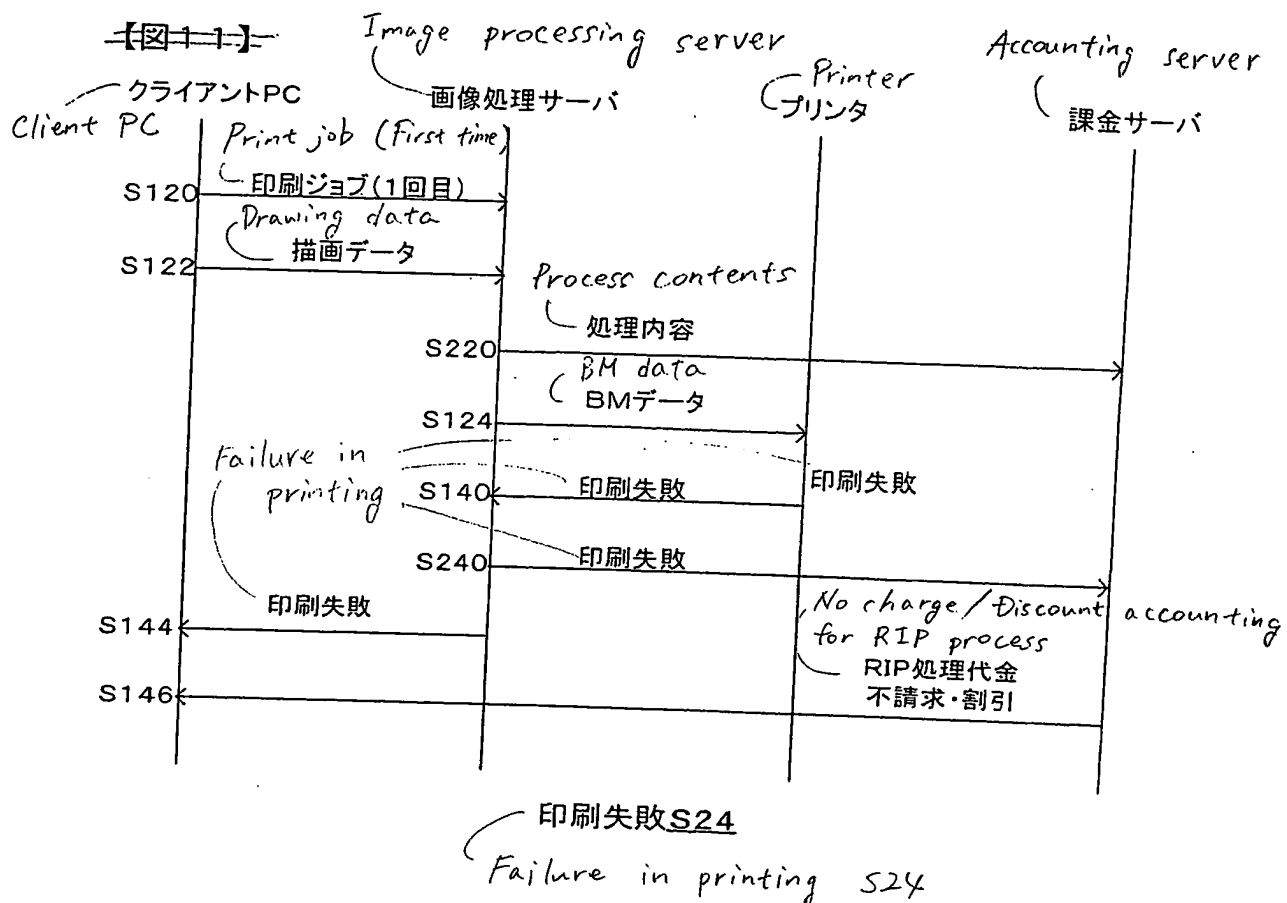 【図11】
Image processing server
Accounting server
Printer
クライアントPC
画像処理サーバ
プリンタ
課金サーバ
Client PC
Print job (First time)
S120
印刷ジョブ(1回目)
Drawing data
S122
描画データ
Process contents
処理内容
S220
BM data
BMデータ
S124
Failure in
printing
印刷失敗
S140
印刷失敗
S240
印刷失敗
印刷失敗
S144
No charge/Discount accounting
for RIP process
RIP処理代金
不請求・割引
S146
印刷失敗S24
Failure in printing S24